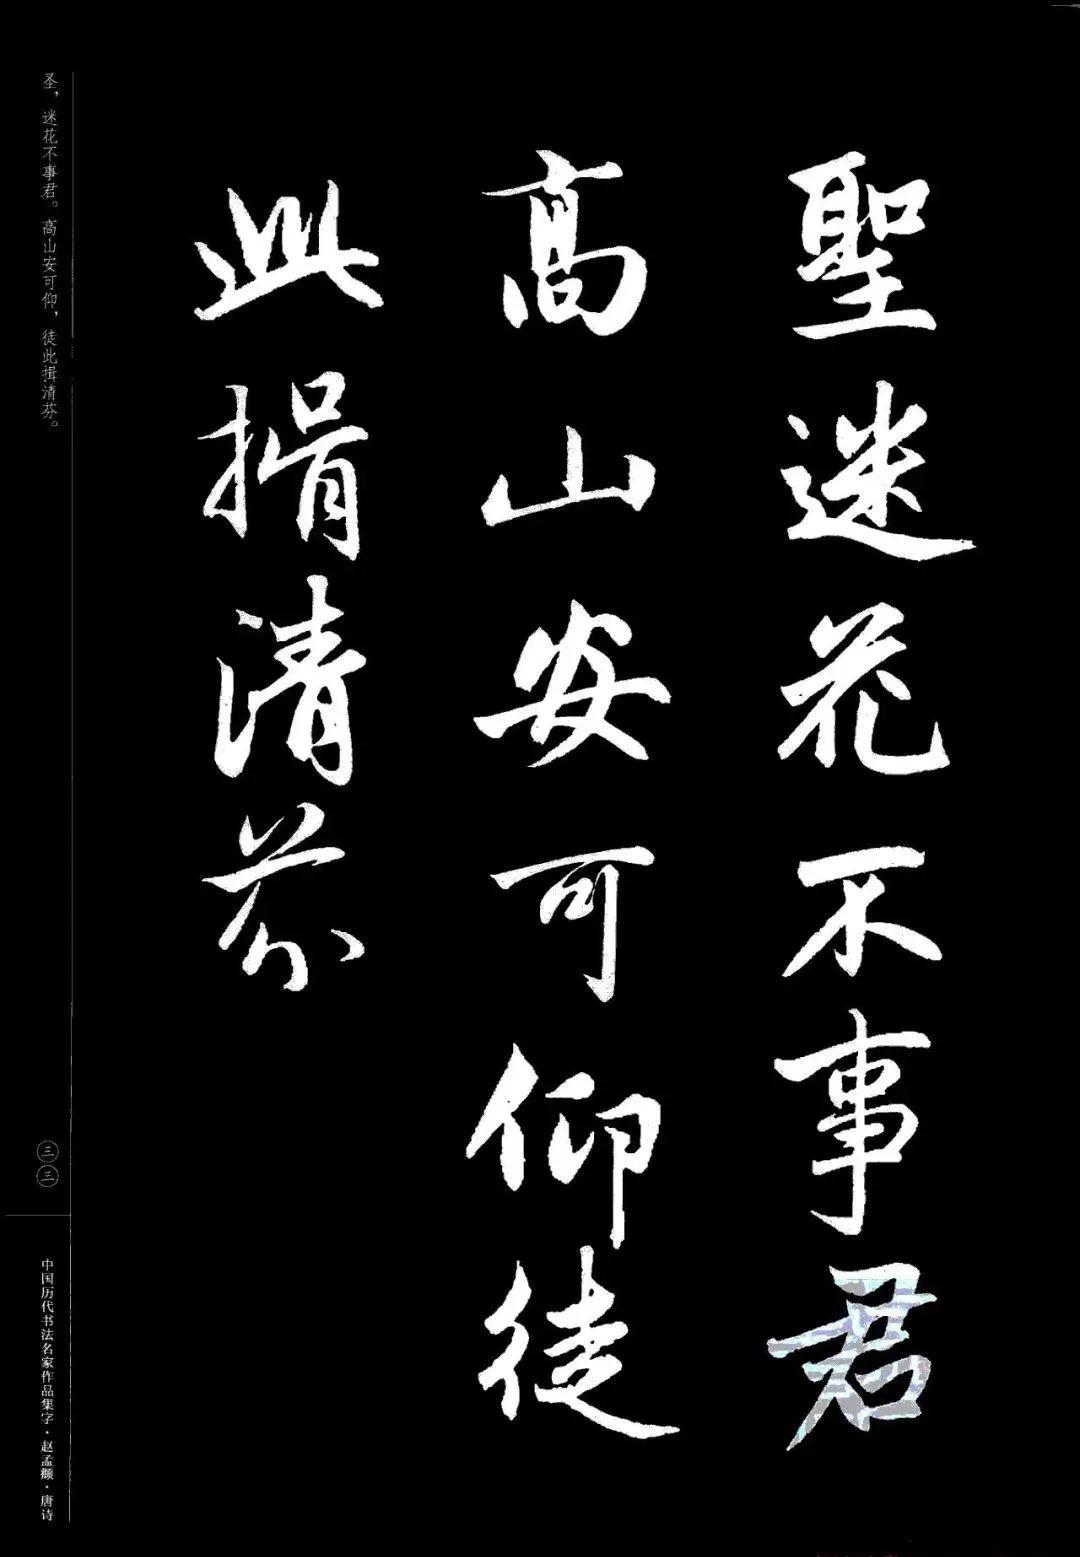 聖迷花不事君
高山安可仰徒
此揖清芬
圣，迷花不事君。高山安可仰，徒此揖清芬。
三三
中国历代书法名家作品集字·赵孟頫·唐诗